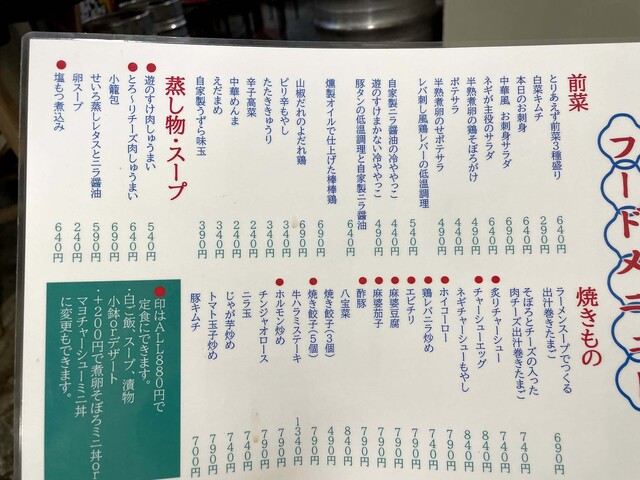 フードメニュー
前菜
とりあえず前菜3種盛り 640円
白菜キムチ 290円
本日のお刺身 640円
中華風 お刺身サラダ 690円
ネギが主役のサラダ 640円
半熟煮卵の鶏そぼろがけ 490円
ポテサラ 440円
半熟煮卵のせポテサラ 490円
レバ刺し風鶏レバーの低温調理
540円
自家製ニラ醤油の冷ややっこ 440円
遊のすけまかない冷ややっこ 490円
豚タンの低温調理と自家製ニラ醤油
640円
燻製オイルで仕上げた棒棒鶏
690円
山椒だれのよだれ鶏 690円
ピリ辛もやし 340円
たたききゅうり 340円
辛子高菜 240円
中華めんま 240円
えだまめ 340円
自家製うずら味玉 390円
蒸し物・スープ
●遊のすけ肉しゅうまい 540円
●とろ〜りチーズ肉しゅうまい 640円
小籠包 690円
せいろ蒸しレタスとニラ醤油 590円
卵スープ 240円
●塩もつ煮込み 640円
焼きもの
ラーメンスープでつくる
出汁巻きたまご 690円
そぼろとチーズの入った
肉チーズ出汁巻きたまご 740円
●炙りチャーシュー 740円
●チャーシューエッグ 840円
ネギチャーシューもやし 840円
●ホイコーロー 740円
●鶏レバニラ炒め 740円
●エビチリ 790円
●麻婆豆腐 790円
●麻婆茄子 790円
●酢豚 790円
八宝菜 840円
焼き餃子(3個) 490円
●焼き餃子(5個) 790円
牛ハラミステーキ 1340円
●ホルモン炒め 790円
チンジャオロース 790円
ニラ玉 740円
じゃが芋炒め 740円
トマト玉子炒め 790円
豚キムチ 700円
●印はALL880円で
定食にできます。
・白ご飯、スープ、漬物
小鉢orデザート
・+200円で煮卵そぼろミニ丼or
マヨチャーシューミニ丼
に変更もできます。